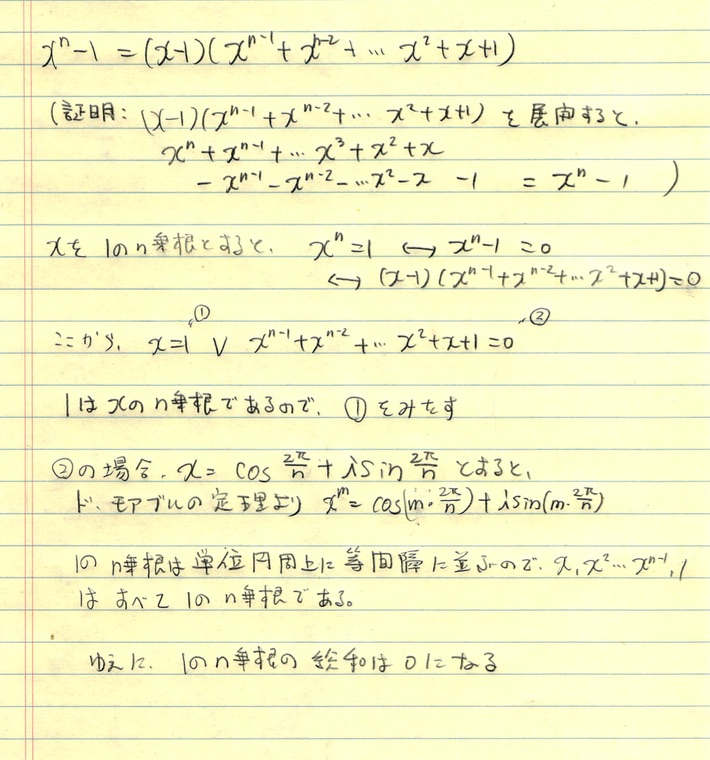 xⁿ-1 = (x-1)(xⁿ⁻¹+xⁿ⁻²+… x²+x+1)
(証明: (x-1)(xⁿ⁻¹+xⁿ⁻²+… x²+x+1) を展開すると、
xⁿ+xⁿ⁻¹+… x³+x²+x
-xⁿ⁻¹-xⁿ⁻²-…x²-x -1 = xⁿ-1 )
xを 1のn乗根とすると、 xⁿ=1 ↔ xⁿ-1=0
↔ (x-1)(xⁿ⁻¹+xⁿ⁻²+… x²+x+1)=0
ここから、 x=1 ① ∨ xⁿ⁻¹+xⁿ⁻²+… x²+x+1=0 ②
1は xの n乗根であるので、 ①をみたす
②の場合、x= cos 2π/n + i sin 2π/n とすると、
ド・モアブルの定理より xᵐ= cos(m・2π/n)+i sin(m・2π/n)
1の n乗根は単位円周上に等間隔に並ぶので、x, x²… xⁿ⁻¹, 1
は すべて 1の n乗根である。
ゆえに、 1のn乗根の 総和は 0になる